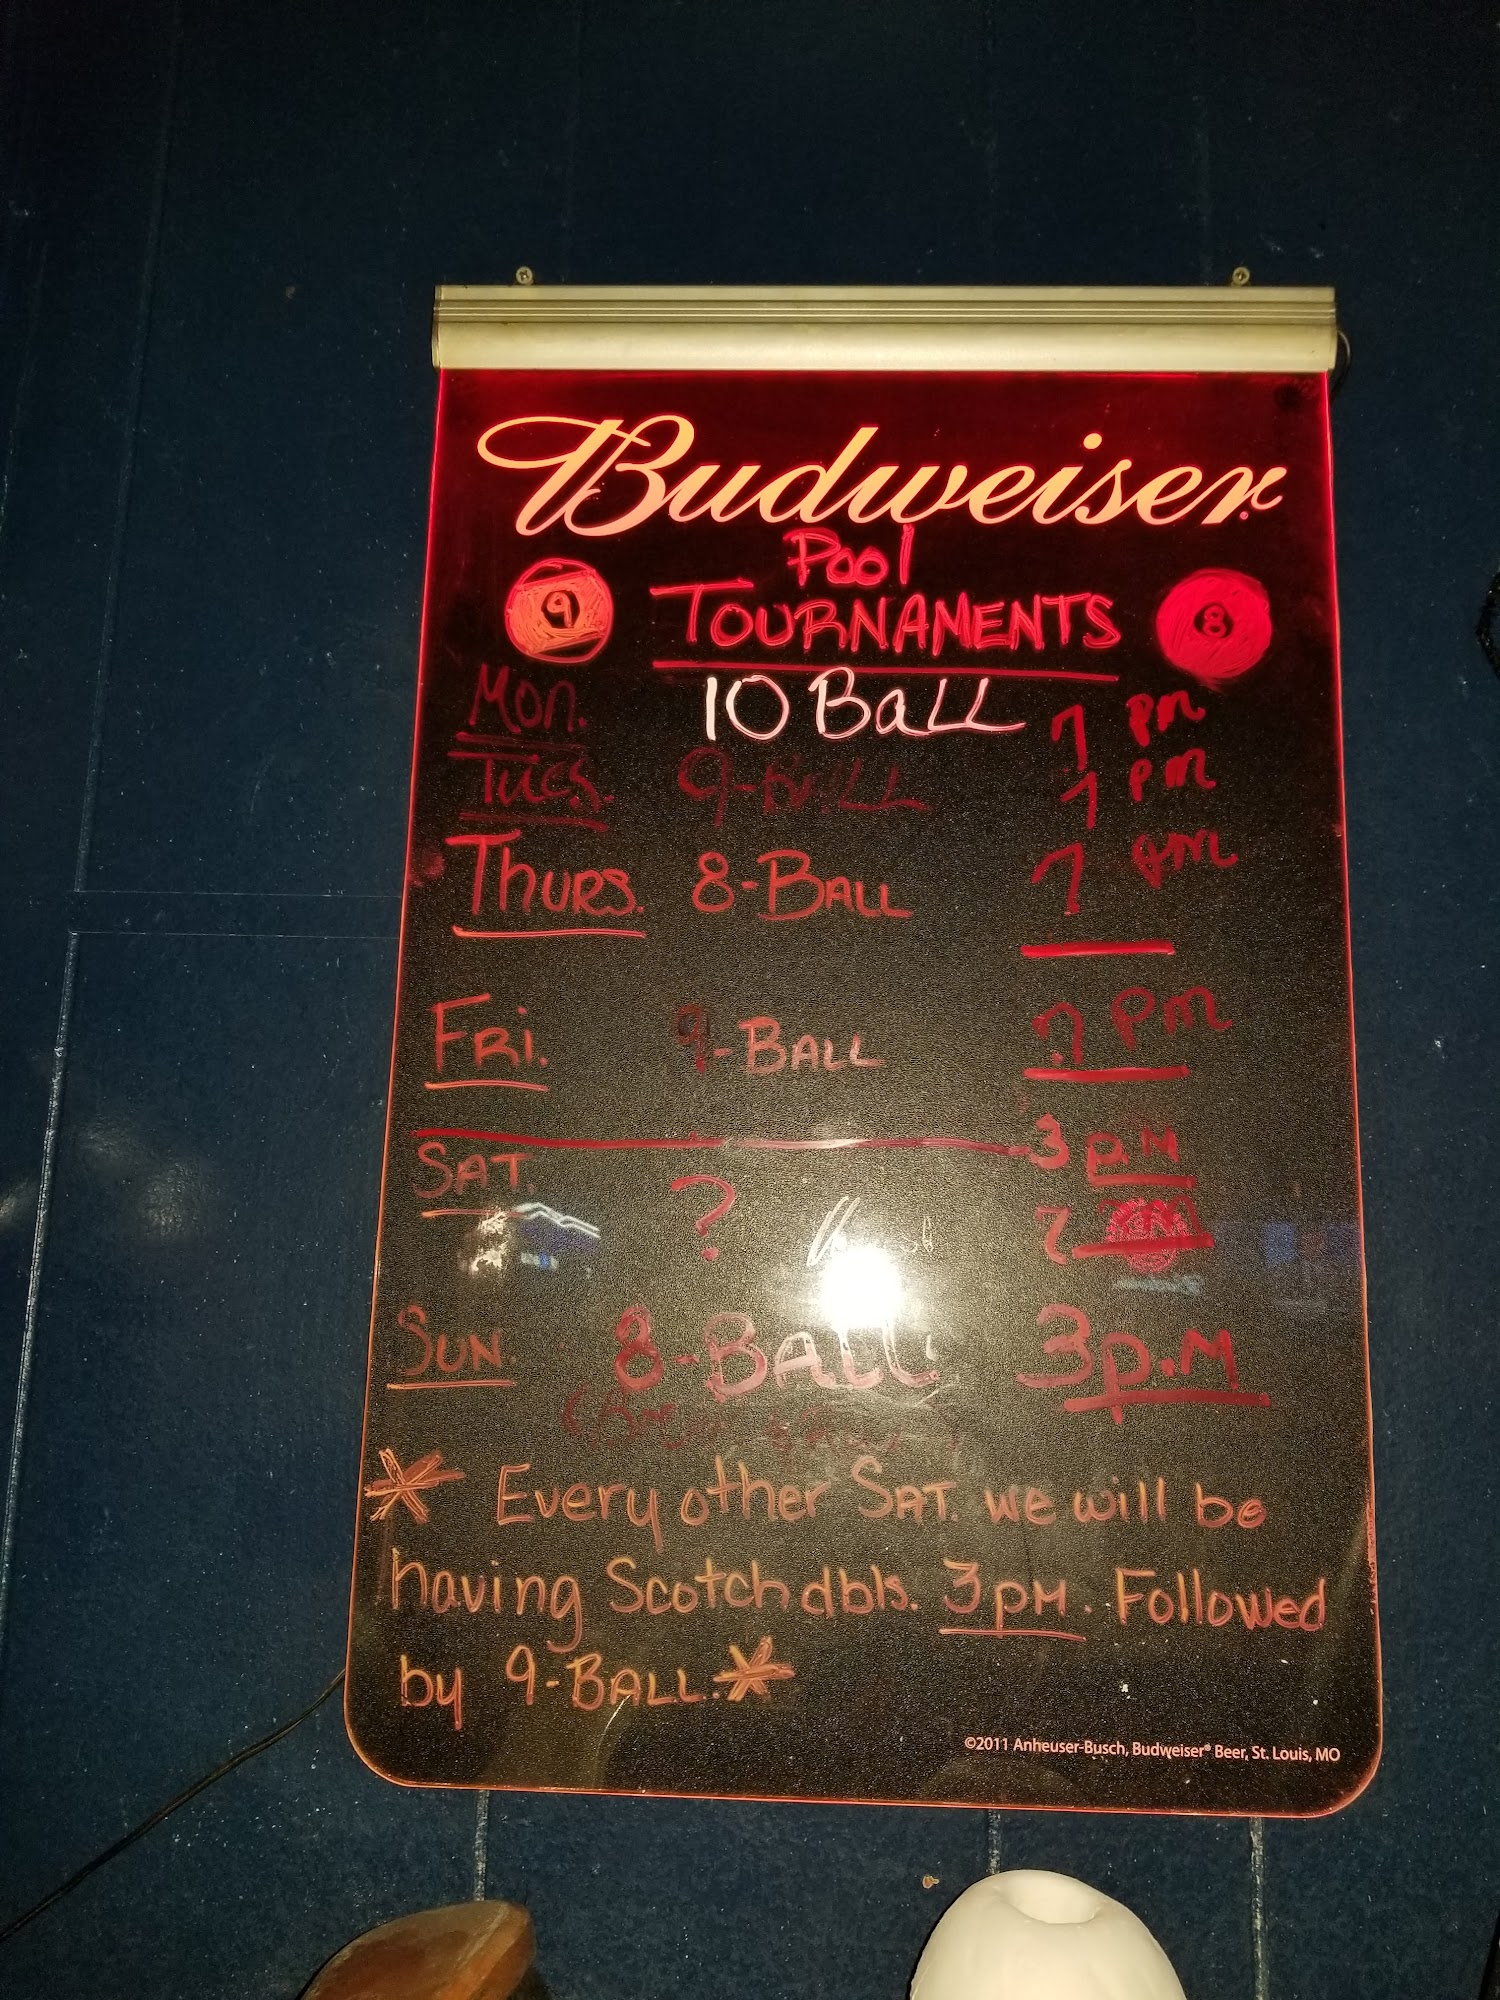 Budweiser
Pool
9 TOURNAMENTS 8
Mon. 10 BaLL 7 pm
Tues. 9-BaLL 7 pm
THURS. 8-BALL 7 pm
FRI. 9-BALL 7 pm
3 pM
SAT. ?
SUN. 8-BALL 3p.M
* Every other SAT. we will be
having Scotch dbls. 3pM. Followed
by 9-BALL.*
©2011 Anheuser-Busch, Budweiser® Beer, St. Louis, MO